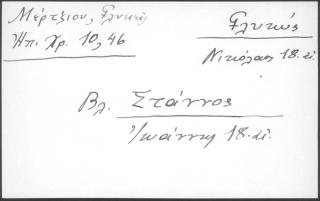 Μέρτζιου, Γλυκής
Ἠπ. Χρ. 10, 46
Γλυκύς
Νικόλαος 18. αἰ.
Βλ. Στάννος
Ἰωάννης 18. αἰ.